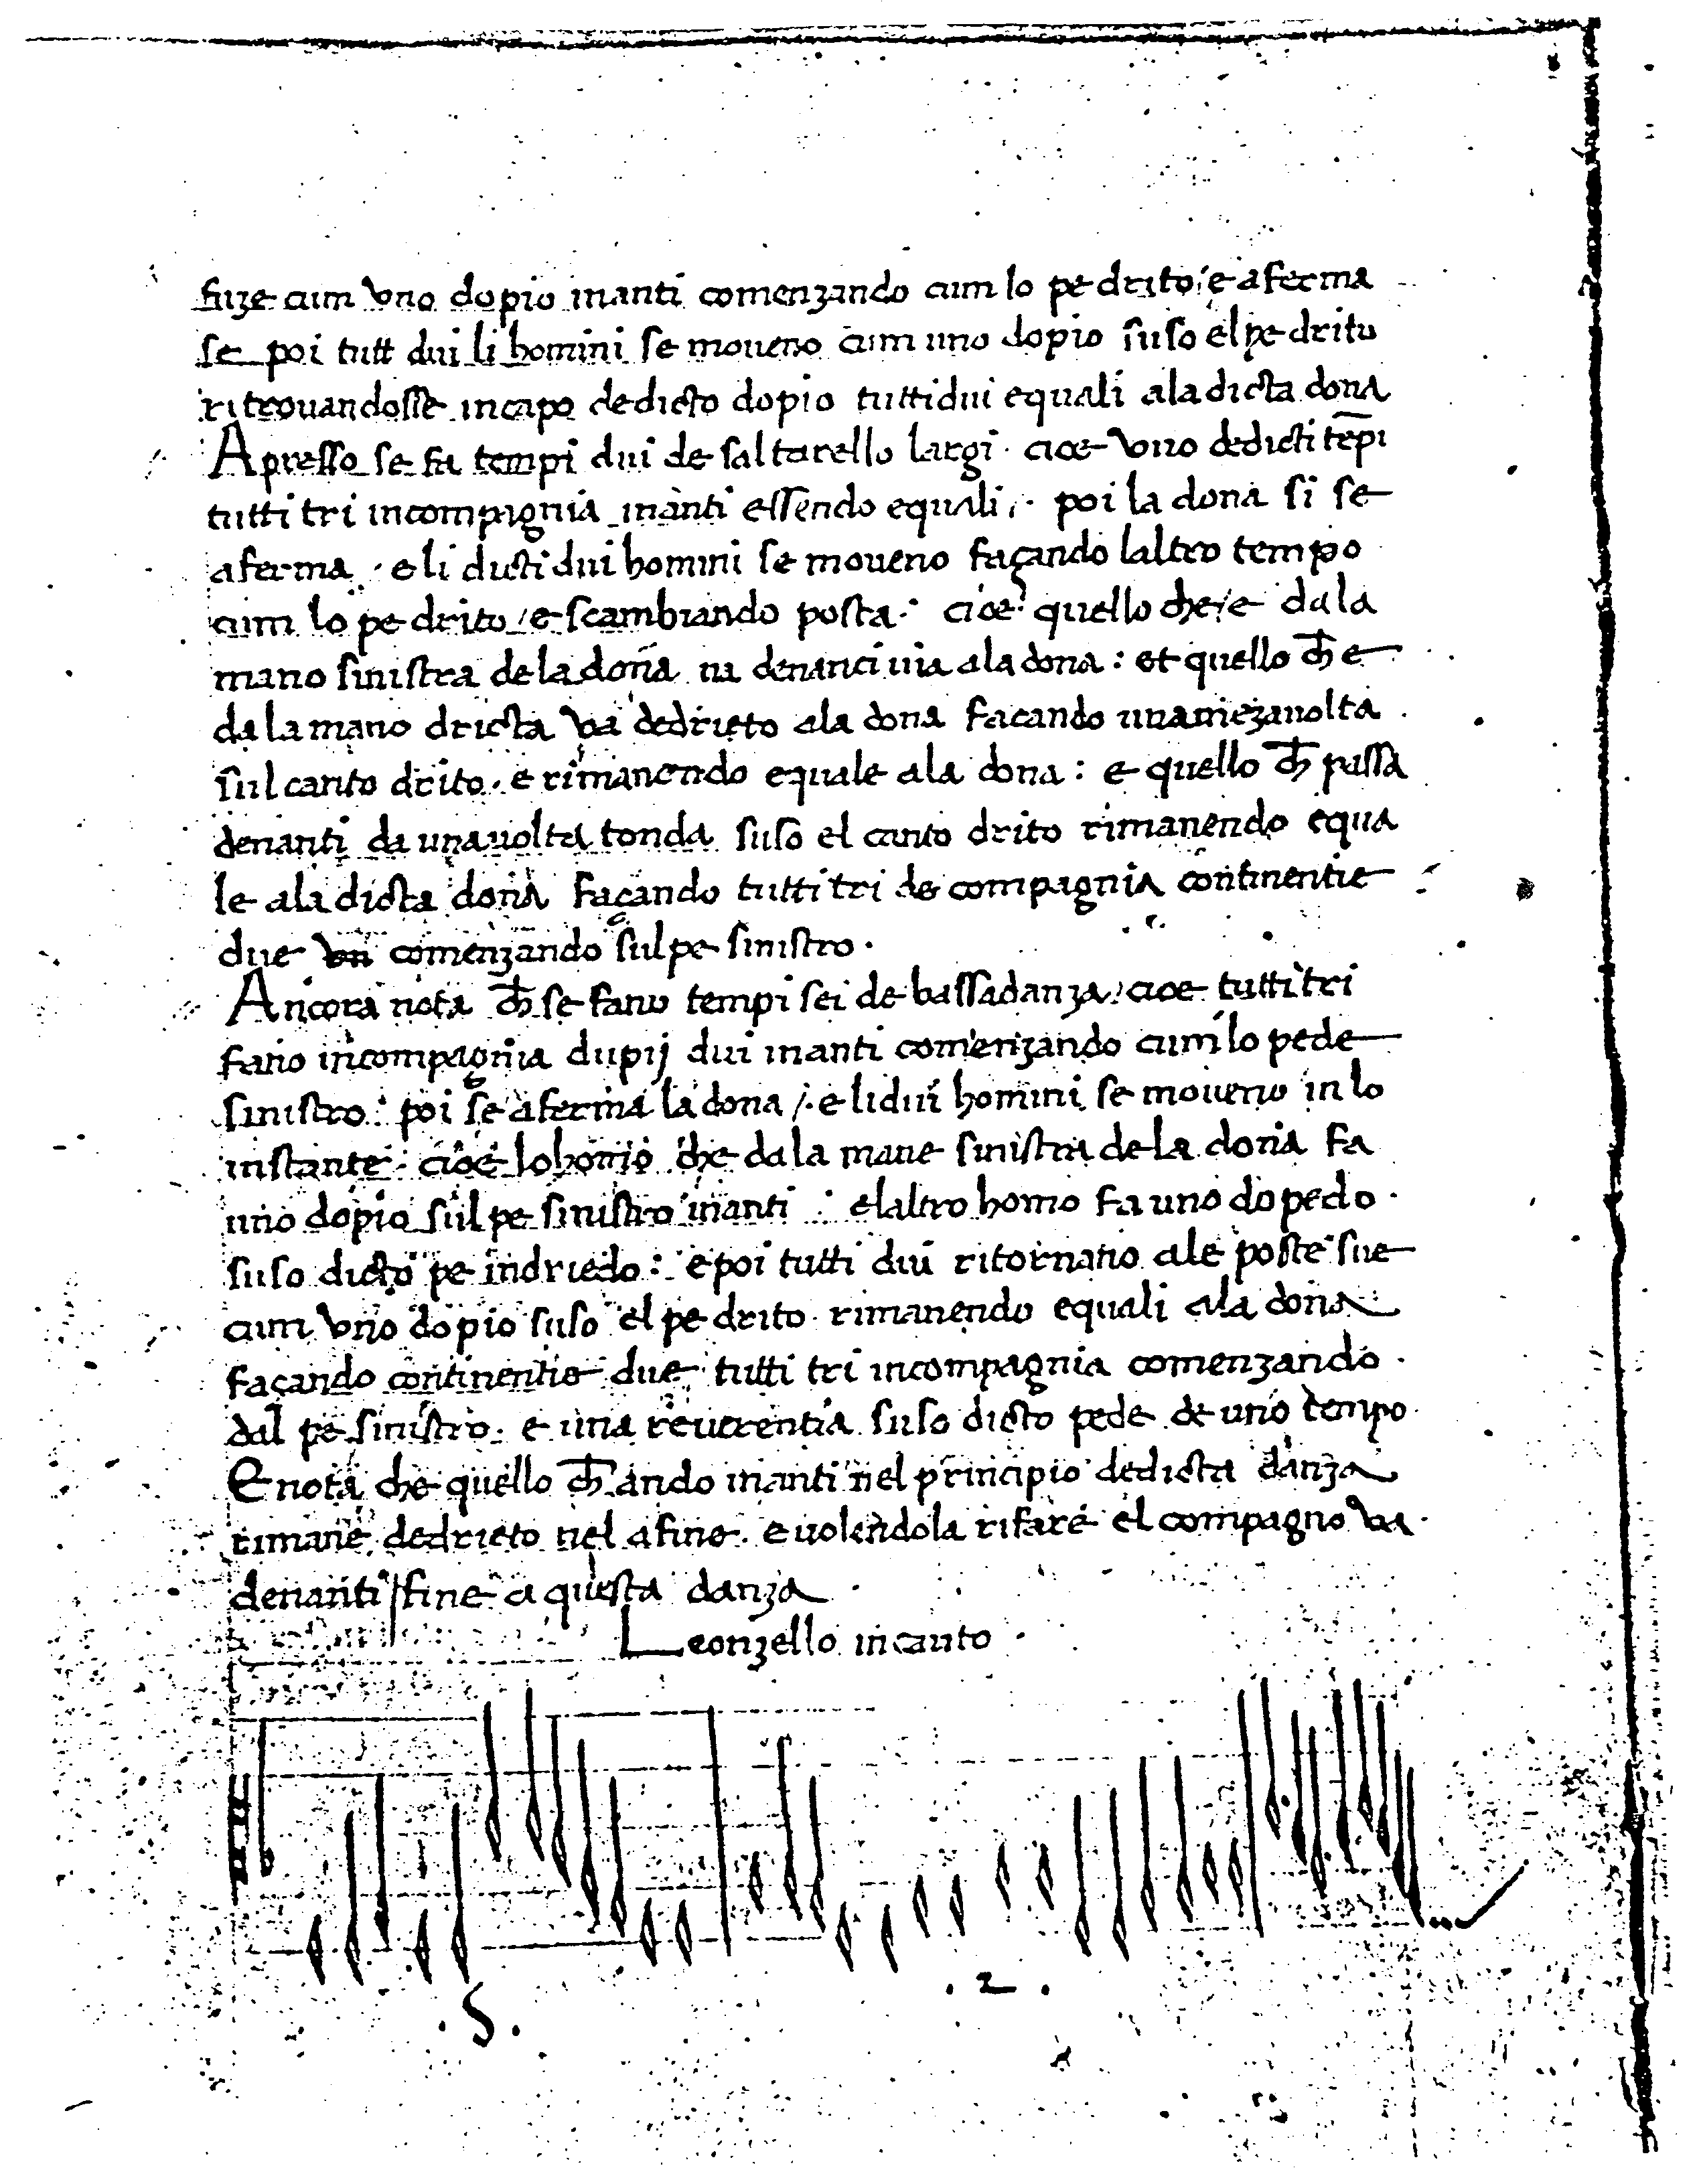 fuze cum vno dopio inanti comenzando cum lo pe drito / e aferma
se poi tutt dui li homini se moueno cum uno dopio suso el pe drito
ritrouandosse in capo de dicto dopio tutti dui equali ala dicta dona
Apresso se fa tempi dui de saltarello largi · cioe vno de dicti tēpi
tutti tri in compagnia inanti essendo equali · poi la dona si se
aferma · e li dicti dui homini se moueno façando laltro tempo
cum lo pe drito / e scambiando posta · cioe quello che / e da la
mano sinistra de la dona ua denanci uia ala dona : et quello ch̄ e
da la mano dricta va dedrieto ala dona facando una meza uolta
sul canto drito · e rimanendo equale ala dona : e quello ch̄ passa
denanti da una uolta tonda suso el canto drito rimanendo equa
le ala dicta dona façando tutti tri de compagnia continentie
due comenzando sul pe sinistro ·
Ancora nota ch̄ se fano tempi sei de bassadanza / cioe tutti tri
fano in compagnia dupij dui inanti comenzando cum lo pede
sinistro : poi se aferma la dona / · e li dui homini se moueno in lo
instante · cioe lo homo che da la mane sinistra de la dona fa
uno dopio sul pe sinistro inanti : e laltro homo fa uno dopedo ·
suso dicto pe indriedo : e poi tutti dui ritornano ale poste sue
cum vno dopio suso el pe drito · rimanendo equali ala dona
façando continentie due tutti tri in compagnia comenzando ·
dal pe sinistro · e una reuerentia suso dicto pede de uno tempo
E nota che quello ch̄ ando inanti nel principio de dicta danza
rimane dedrieto nel a fine · e uolendola rifare el compagno va ·
denanti / fine a questa danza
Leonzello in canto ·
· S ·
· 2 ·